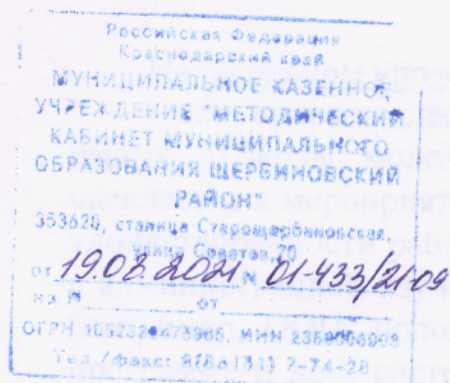 Российская Федерация
Краснодарский край
МУНИЦИПАЛЬНОЕ КАЗЕННОЕ
УЧРЕЖДЕНИЕ "МЕТОДИЧЕСКИЙ
КАБИНЕТ МУНИЦИПАЛЬНОГО
ОБРАЗОВАНИЯ ЩЕРБИНОВСКИЙ
РАЙОН"
353620, станица Старощербиновская,
улица Советов,70
от 19.08.2021 N 01-433/21-09
на N от
ОГРН ИНН
Тел./факс: 8(86151) 7-74-28